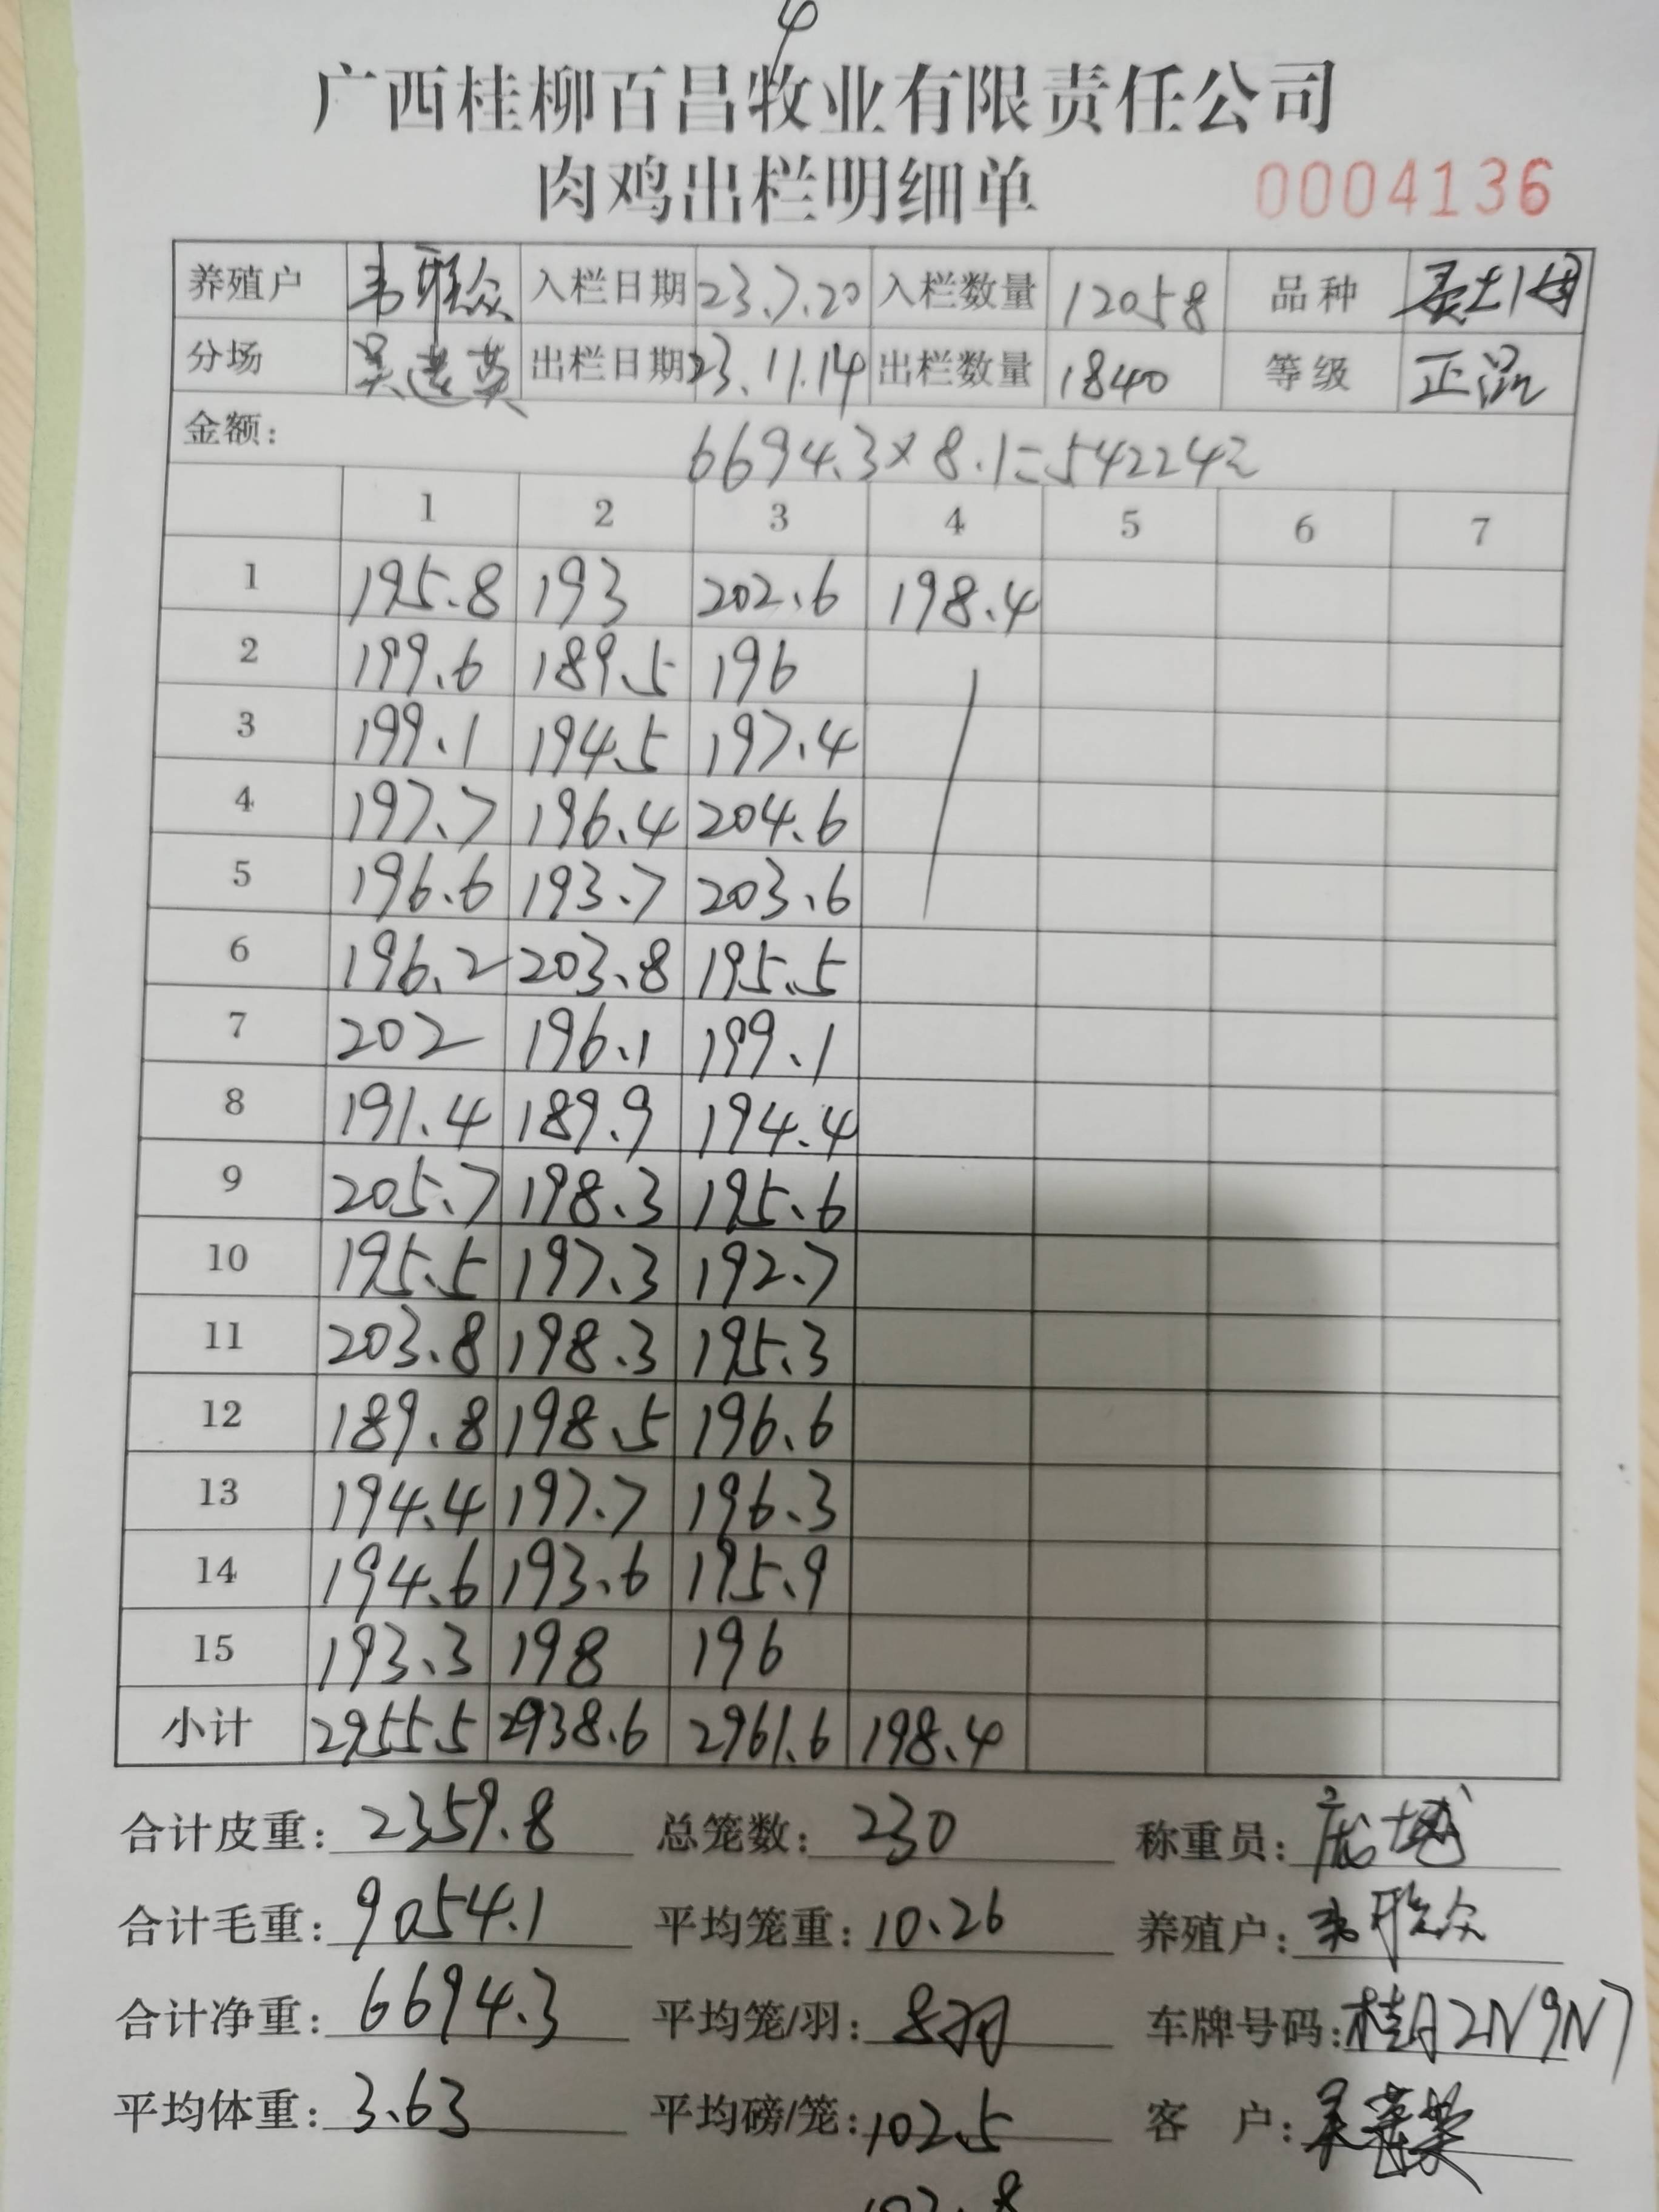 4
广西桂柳百昌牧业有限责任公司
肉鸡出栏明细单 0004136
养殖户 韦雅众 入栏日期 23.7.20 入栏数量 12058 品种
分场 吴莲英 出栏日期 23.11.14 出栏数量 1840 等级 正品
金额: 6694.3×8.1=54224元
1 2 3 4 5 6 7
1 195.8 193 202.6 198.4
2 199.6 189.5 196
3 199.1 194.5 197.4
4 197.7 196.4 204.6
5 196.6 193.7 203.6
6 196.2 203.8 195.5
7 202 196.1 199.1
8 191.4 189.9 194.4
9 205.7 198.3 195.6
10 195.5 197.3 192.7
11 203.8 198.3 195.3
12 189.8 198.5 196.6
13 194.4 197.7 196.3
14 194.6 193.6 195.9
15 193.3 198 196
小计 2955.5 2938.6 2961.6 198.4
合计皮重: 2359.8 总笼数: 230 称重员:
合计毛重: 9054.1 平均笼重: 10.26 养殖户: 韦雅众
合计净重: 6694.3 平均笼/羽: 8羽 车牌号码: 桂A2N9N7
平均体重: 3.63 平均磅/笼: 102.5 客 户: 吴莲英
102.8